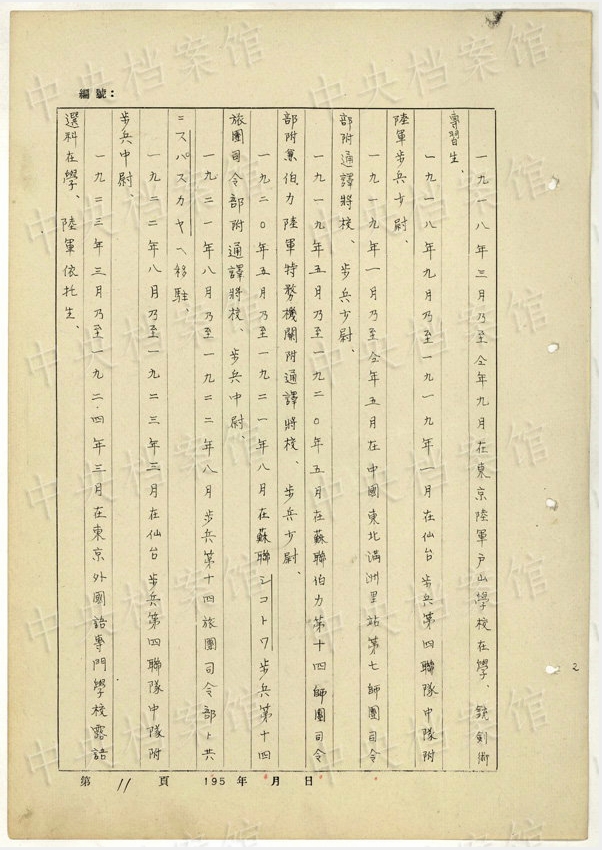 編號：
一九一八年三月乃至仝年九月在東京陸軍戶山學校在學、銃剣術
專習生、
一九一八年九月乃至一九一九年一月在仙台步兵第四聯隊中隊附
陸軍步兵少尉、
一九一九年一月乃至仝年五月在中國東北滿洲里站第七師團司令
部附通譯將校、步兵少尉、
一九一九年五月乃至一九二〇年五月在蘇聯伯力第十四師團司令
部附兼伯力陸軍特務機關附通譯將校、步兵少尉、
一九二〇年五月乃至一九二一年八月在蘇聯シコトワ步兵第十四
旅團司令部附通譯將校、步兵中尉、
一九二一年八月乃至一九二二年八月步兵第十四旅團司令部ト共
ニスパスカヤヘ移駐、
一九二二年八月乃至一九二三年三月在仙台步兵第四聯隊中隊附
步兵中尉、
一九二三年三月乃至一九二四年三月在東京外國語專門學校露語
選科在學、陸軍依托生、
第 11 頁 195 年 月 日
2
中央档案馆